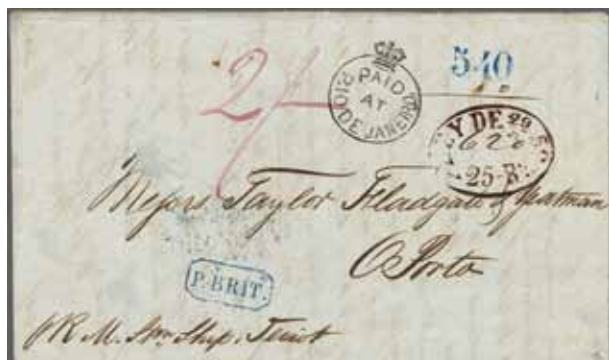 2/-
PAID
AT
RIO DE JANEIRO
540
DE 29
622
25-R
Messrs Taylor Fladgate & Yeatman
OPorto
P. BRIT.
pr R. M. Stm Ship. Teviot